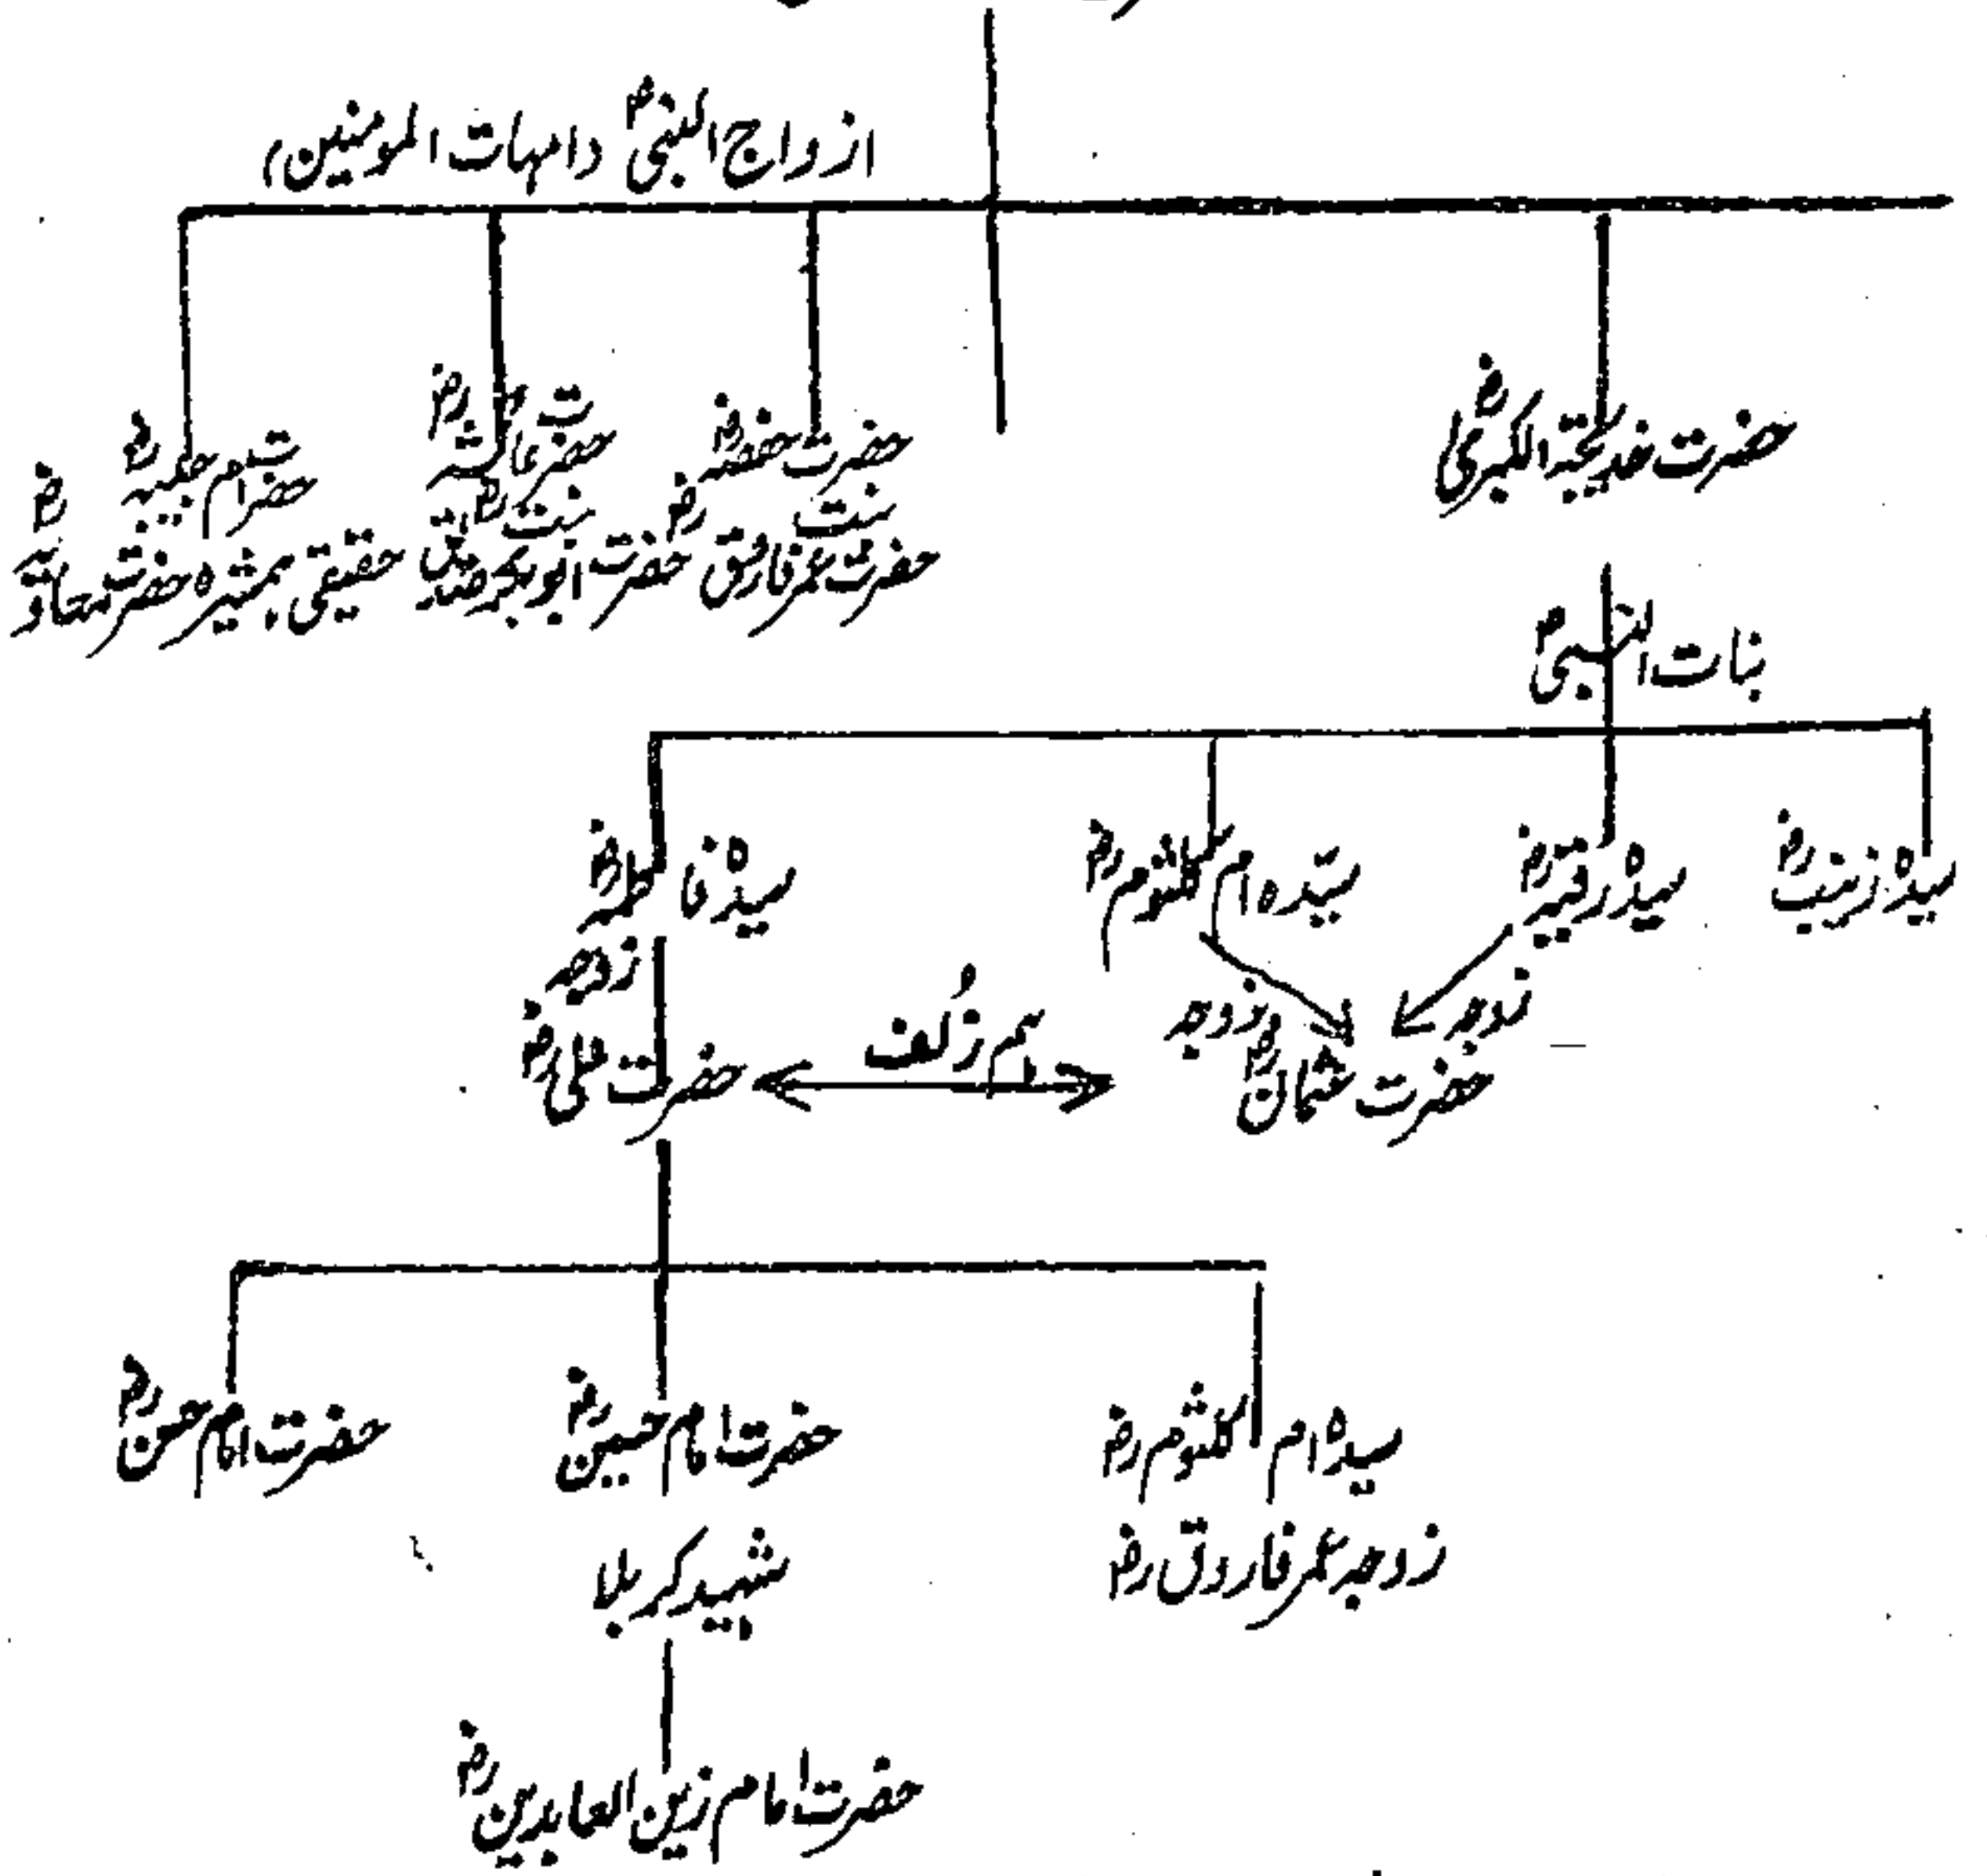 ازواج النبیؐ (امہات المومنین)
حضرت خدیجۃ الکبریٰؓ
حضرت حفصہؓ
بنت
حضرت عمر فاروقؓ
حضرت عائشہؓ
بنت
حضرت ابوبکر صدیقؓ
حضرت ام حبیبہؓ
حقیقی ہمشیرہ حضرت معاویہؓ
بنات النبیؐ
سیدہ زینبؓ
سیدہ رقیہؓ
سیّدہ ام کلثومؓ
سیدہ فاطمہؓ
زوجہ
زوجہ
زوجہ
حضرت عثمانؓ
ہم زُلف
حضرت علیؓ
سیدہ ام کلثومؓ
زوجہ عمر فاروقؓ
حضرت امام حسینؓ
شہید کربلا
حضرت امام حسنؓ
حضرت امام زین العابدینؓ